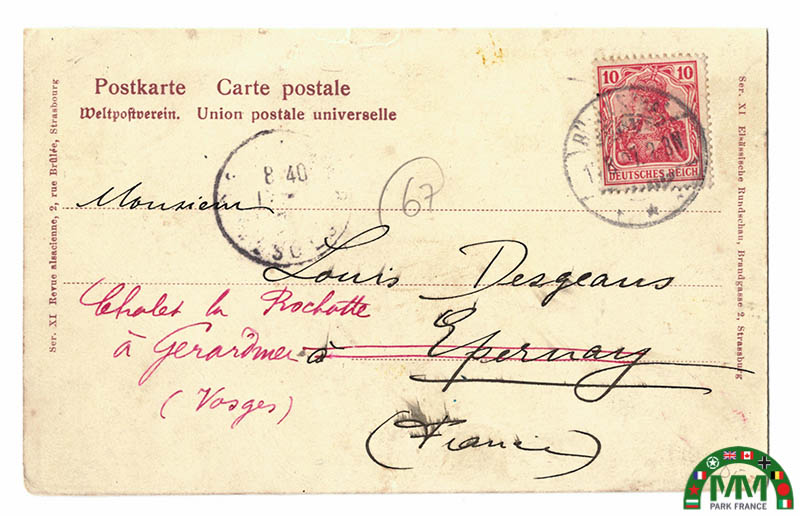 Postkarte Carte postale
Weltpostverein. Union postale universelle
10 10
DEUTSCHES REICH
8 40
67
Monsieur
Louis Desgeans
Chalet la Rochotte
à Gerardmer à Epernay
(Vosges)
(France)
Ser. XI Revue alsacienne, 2, rue Brûlée, Strasbourg
Ser. XI Elsässische Rundschau, Brandgasse 2, Strassburg
MM
PARK FRANCE